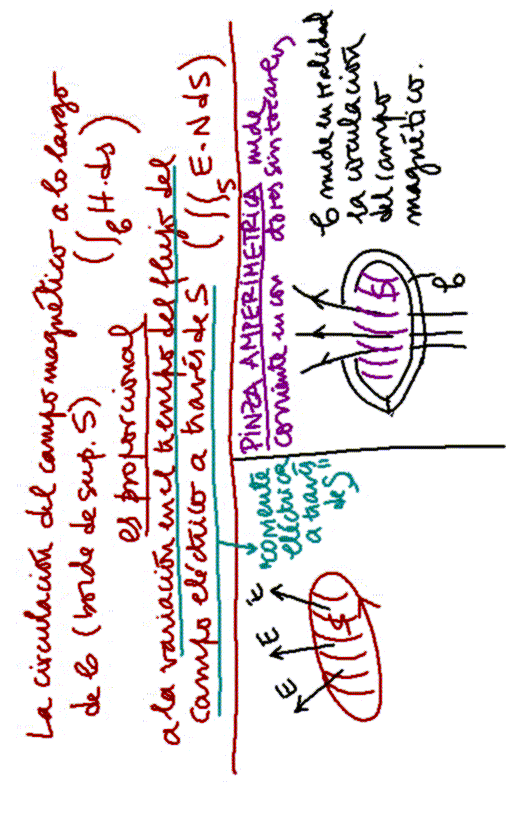 La circulación del campo magnético a lo largo
de ℓ (borde de sup. S) (∫ℓ H·ds)
es proporcional
a la variación en el tiempo del flujo del
campo eléctrico a través de S (∫∫S E·N dS)
"corriente
eléctrica
a través
de S"
E
E
E
S
PINZA AMPERIMETRICA mide
corriente en con
dores sin tocarlos
S
ℓ
ℓ mide en realidad
la circulación
del campo
magnético.